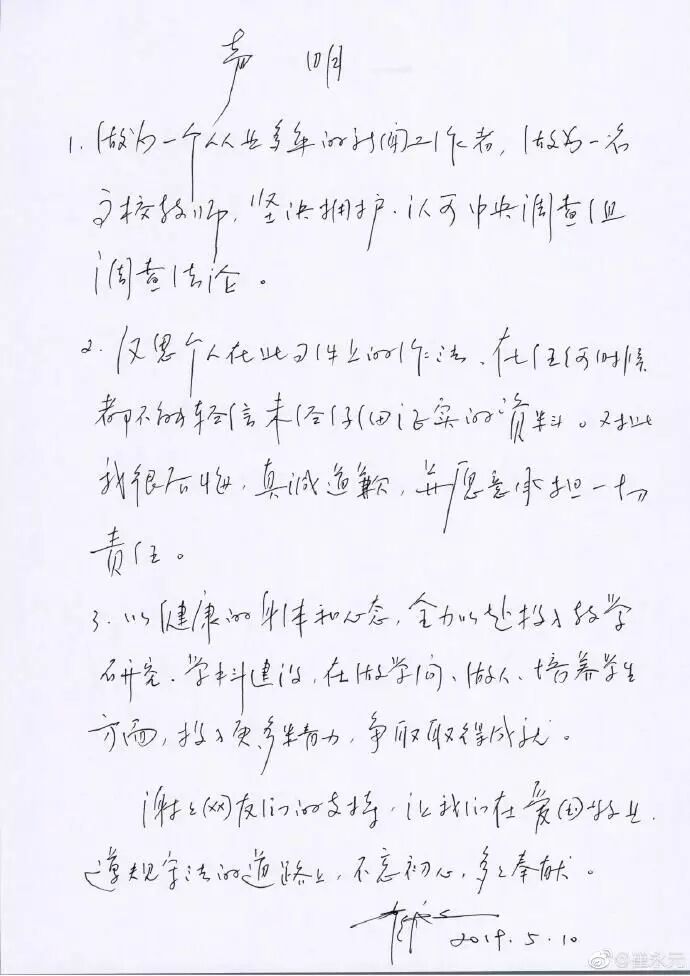 声明
1. 做为一个从业多年的新闻工作者，做为一名
高校教师，坚决拥护、认可中央调查组
调查结论。
2. 反思个人在此事件上的作法、在任何时候
都不能轻信未经仔细证实的资料。对此
我很后悔，真诚道歉，并愿意承担一切
责任。
3. 以健康的身体和心态，全力以赴投入教学
研究、学科建设，在做学问、做人、培养学生
方面，投入更多精力，争取取得成就。
谢谢网友们的支持，让我们在爱国敬业、
遵规守法的道路上，不忘初心，多多奉献。
2019.5.10
@崔永元